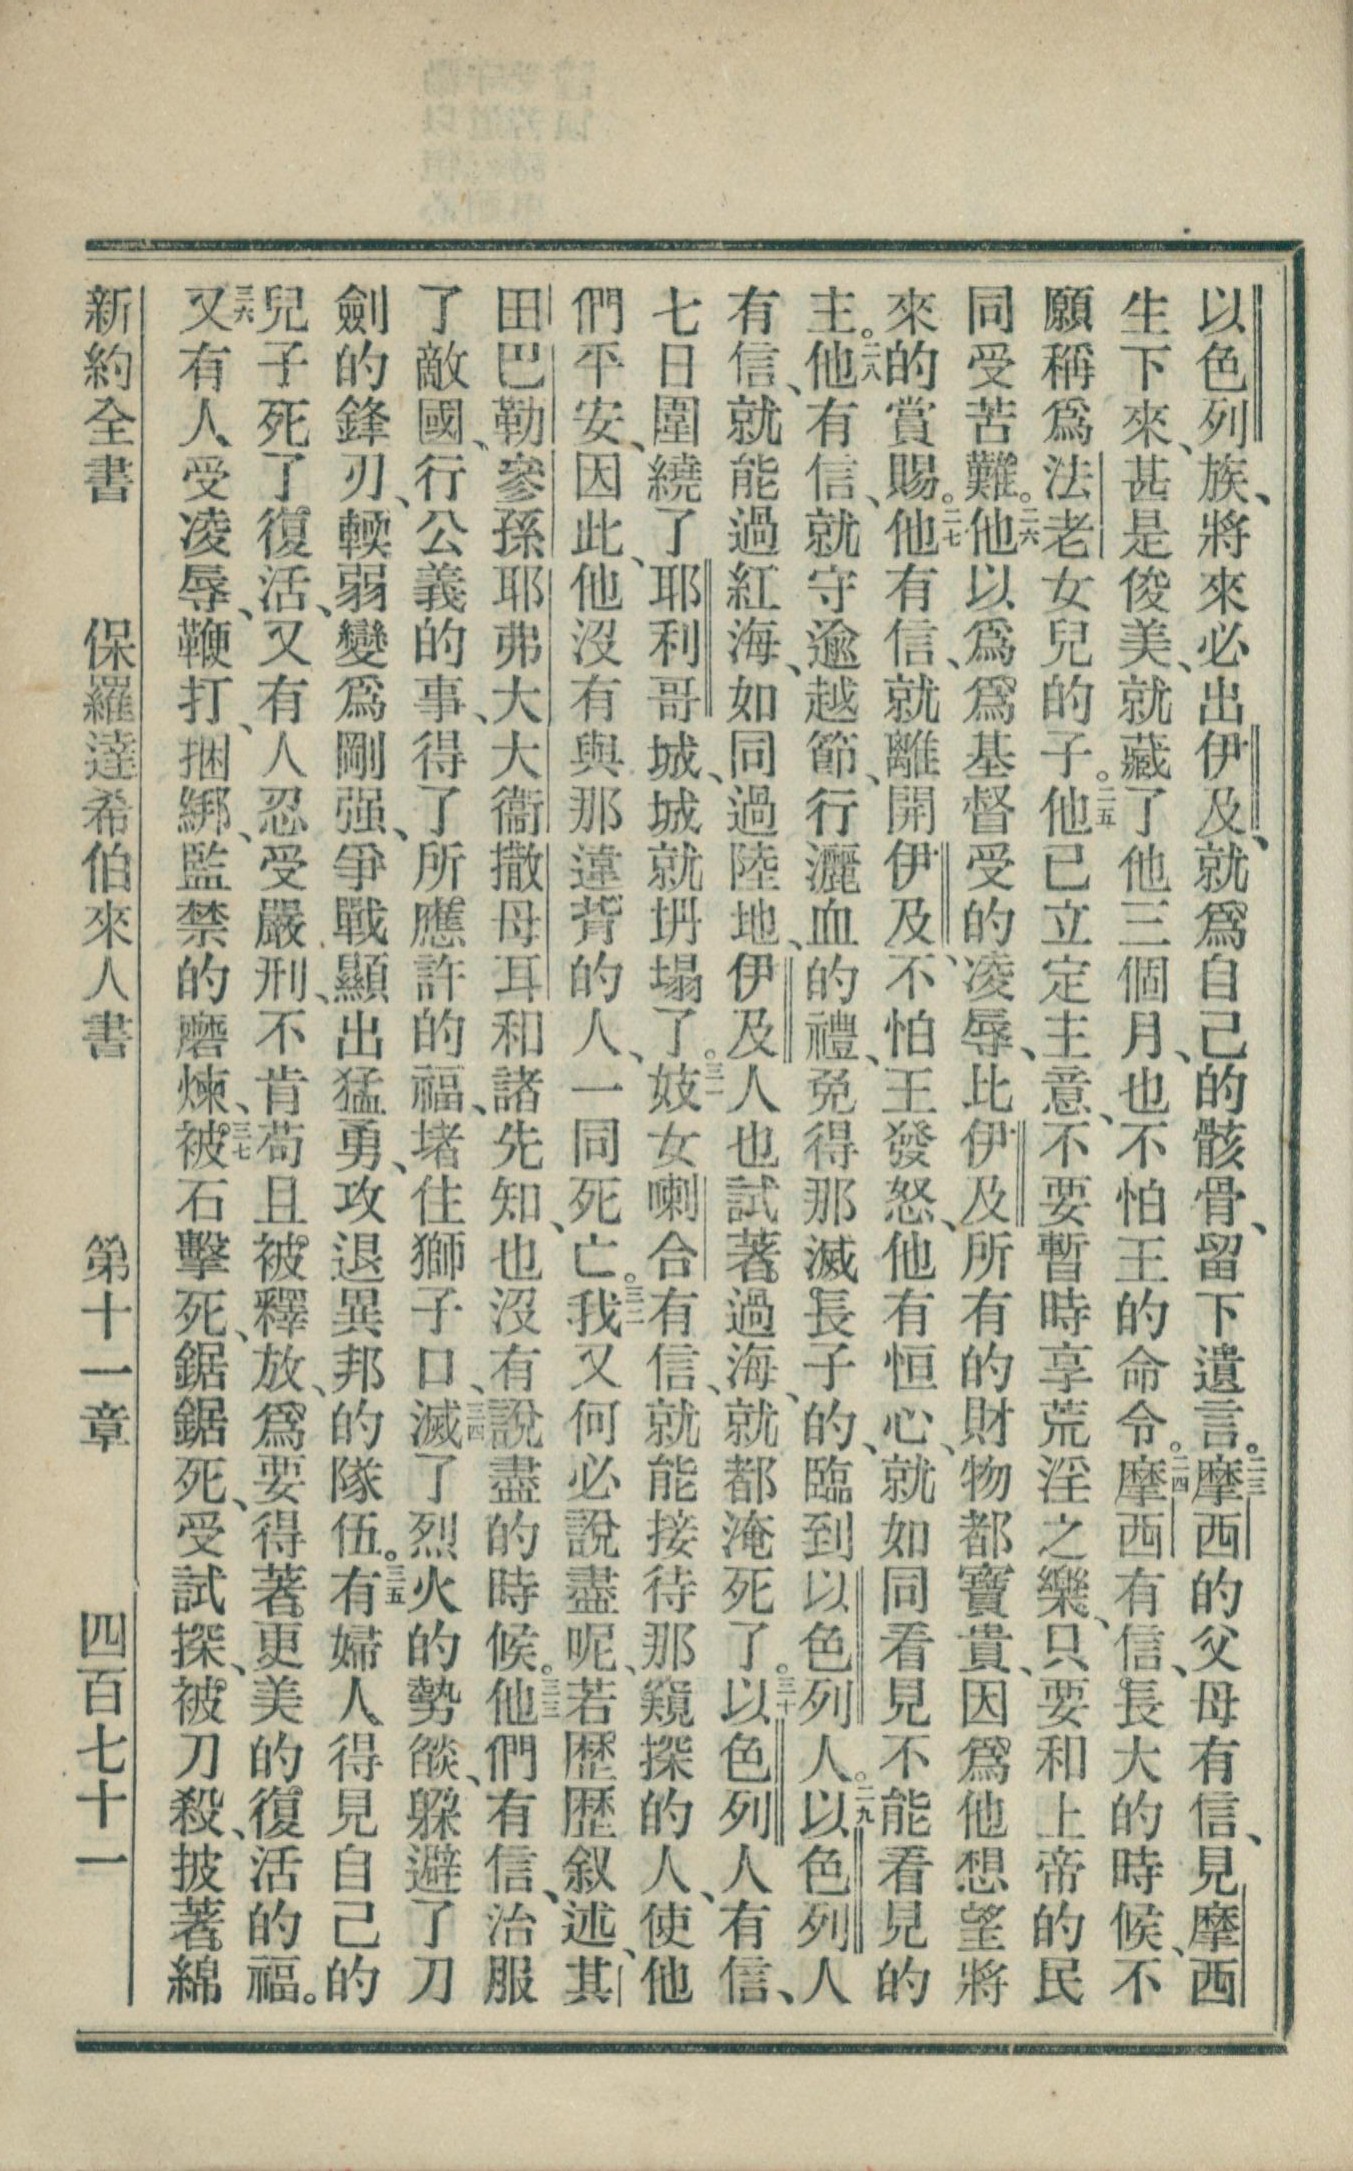 以色列族、將來必出伊及、就爲自己的骸骨、留下遺言。二三摩西的父母有信、見摩西
生下來、甚是俊美、就藏了他三個月、也不怕王的命令。二四摩西有信、長大的時候、不
願稱爲法老女兒的子。二五他已立定主意、不要暫時享荒淫之樂、只要和上帝的民
同受苦難。二六他以爲爲基督受的凌辱、比伊及所有的財物都寶貴、因爲他想望將
來的賞賜。二七他有信、就離開伊及、不怕王發怒、他有恒心、就如同看見不能看見的
主。二八他有信、就守逾越節、行灑血的禮、免得那滅長子的、臨到以色列人。二九以色列人
有信、就能過紅海、如同過陸地、伊及人也試著過海、就都淹死了。三十以色列人有信、
七日圍繞了耶利哥城、城就坍塌了。三一妓女喇合有信、就能接待那窺探的人、使他
們平安、因此、他沒有與那違背的人、一同死亡。三二我又何必說盡呢、若歷歷叙述、其
田巴勒參孫耶弗大大衞撒母耳和諸先知、也沒有說盡的時候。三三他們有信、治服
了敵國、行公義的事、得了所應許的福、堵住獅子口、三四滅了烈火的勢燄、躲避了刀
劍的鋒刃、輭弱變爲剛强、爭戰顯出猛勇、攻退異邦的隊伍。三五有婦人得見自己的
兒子死了復活、又有人忍受嚴刑、不肯苟且被釋放、爲要得著更美的復活的福。
三六又有人、受凌辱、鞭打、捆綁、監禁的磨煉、三七被石擊死、鋸鋸死、受試探、被刀殺、披著綿
新約全書　保羅達希伯來人書　第十一章　四百七十一